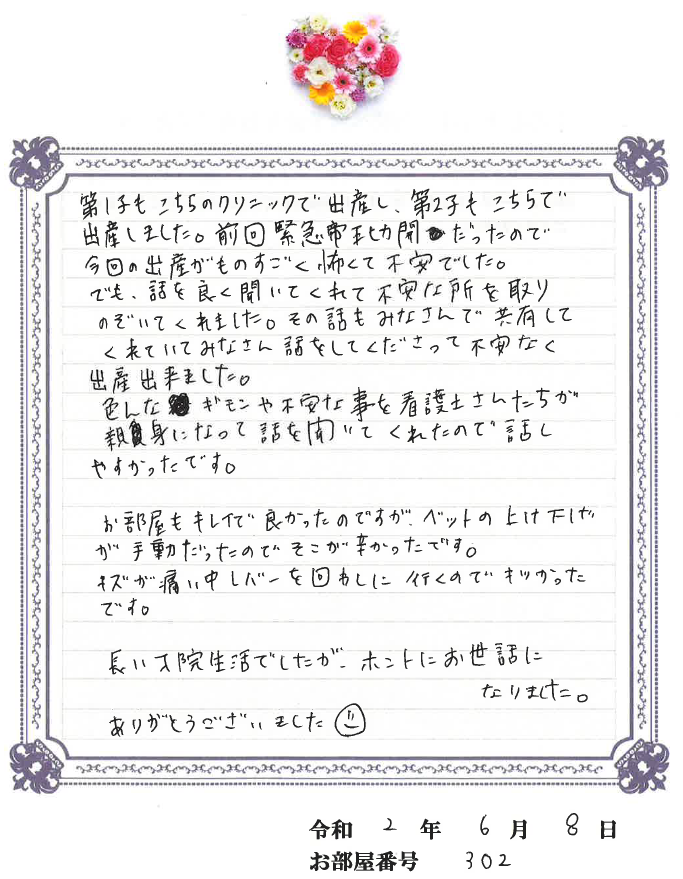 第1子もこちらのクリニックで出産し、第2子もこちらで
出産しました。前回緊急帝王切開だったので
今回の出産がものすごく怖くて不安でした。
でも、話を良く聞いてくれて不安な所を取り
のぞいてくれました。その話もみなさんで共有して
くれていてみなさん話をしてくださって不安なく
出産出来ました。
色んなギモンや不安な事を看護士さんたちが
親身になって話を聞いてくれたので話し
やすかったです。
お部屋もキレイで良かったのですが、ベットの上げ下げ
が手動だったのでそこが辛かったです。
キズが痛い中レバーを回わしに行くのでキツかった
です。
長い入院生活でしたが、ホントにお世話に
なりました。
ありがとうございました
令和 2 年 6 月 8 日
お部屋番号 302